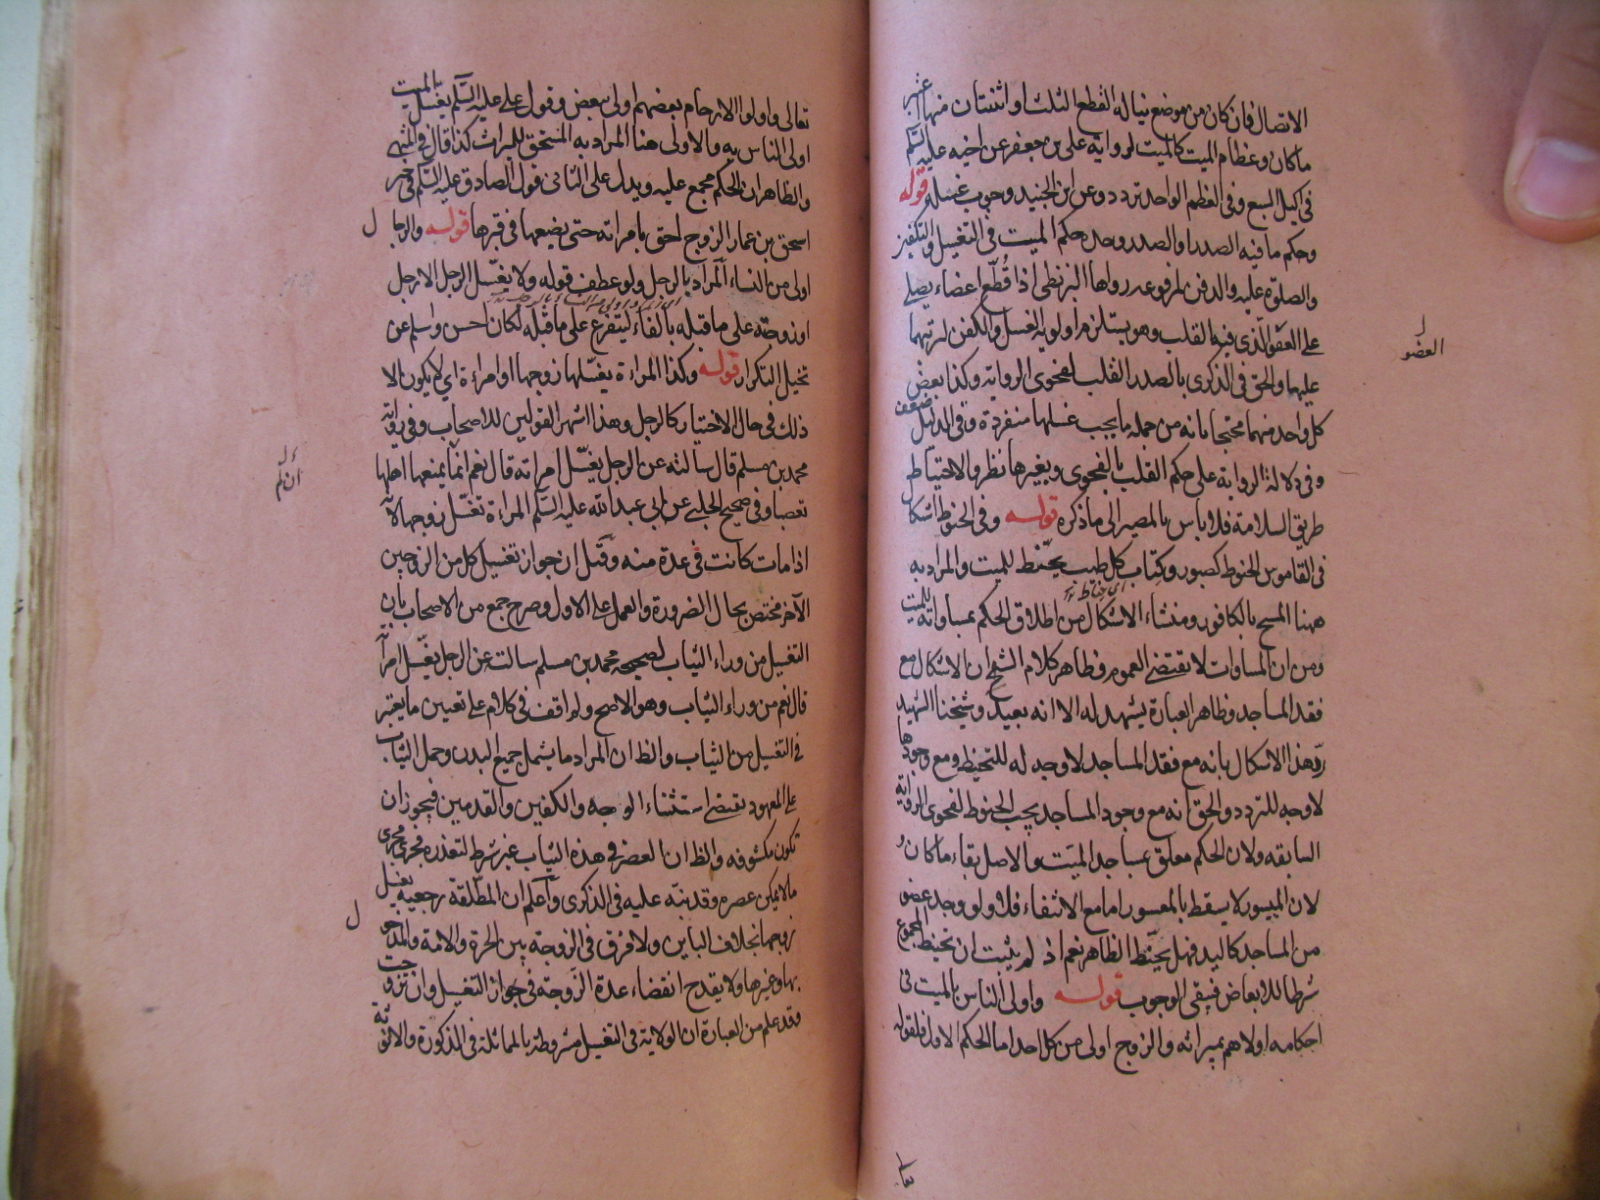 الاتصال فان كان من موضع يناله القطع الثلث او اثنتان منها اعتبر
ما كان وعظام الميت كالميت لرواية علي بن جعفر عن اخيه عليه السلم
في اكيل السبع وفي العظم الواحد تردد وعن ابن الجنيد وجوب غسله قوله
وحكم ما فيه الصدر او الصدر وحده حكم الميت في التغسيل والتكفين
والصلوة عليه والدفن لمرفوعه رواها البزنطي اذا قُطّع اعضاء يصلي
على العضو الذي فيه القلب وهو يستلزم اولوية الغسل والكفن لترتبهما
عليها والحق في الذكرى بالصدر القلب لفحوى الرواية وكذا بعض
كل واحد منهما محتجا بانه من جمله ما يجب غسلها منفردة وفي الدليل ضعف
وفي دلالة الرواية على حكم القلب بالفحوى وبغيرها نظر والاحتياط
طريق السلامة فلا باس بالمصير الى ما ذكره قوله وفي الحنوط اشكال
في القاموس الحنوط كصبور وكتاب كل طيب يحنط للميت والمراد به
ههنا المسح بالكافور ومنشاء الاشكال من اطلاق الحكم بمساواته للميت
ومن ان المساوات لا تقتضي العموم وظاهر كلام الشيخ ان الاشكال مع
فقد المساجد وظاهر العبارة يشهد له الا انه بعيد وشيخنا الشهيد
رد هذا الاشكال بانه مع فقد المساجد لا وجه له للتحنيط ومع وجودها
لا وجه للتردد والحق انه مع وجود المساجد يجب الحنوط لفحوى الرواية
السابقه ولان الحكم معلق بمساجد الميت والاصل بقاء ما كان و
لان الميسور لا يسقط بالمعسور اما مع الانتفاء فلا ولو وجد عضو
من المساجد كاليد فهل يحنط الظاهر نعم اذ لم يثبت ان تحنيط المجموع
شرطا للابعاض فيبقى الوجوب قوله واولى الناس بالميت في
احكامه اولاهم بميراثه والزوج اولى من كل احد اما الحكم الاول فلقوله
العضو
تعالى واولوا الارحام بعضهم اولى ببعض وقول علي عليه السلم يغسل الميت
اولى الناس به والاولى هنا المراد به المستحق للميراث كذا قال في المنتهى
والظاهر ان الحكم مجمع عليه ويدل على الثاني قول الصادق عليه السلم في خبر
اسحق بن عمار الزوج احق بامراته حتى يضعها في قبرها قوله والرجال
اولى من النساء المراد بالرجل ولو عطف قوله ولا يغسل الرجل الا رجل
او زوجته على ما قبله بالفاء ليتفرع على ما قبله لكان احسن واسلم عن
تخيل التكرار قوله وكذا المراءة يغسلها زوجها او امراءة اي لا يكون الا
ذلك في حال الاختيار كالرجل وهذا اشهر القولين للاصحاب وفي رواية
محمد بن مسلم قال سالته عن الرجل يغسل امراته قال نعم انما يمنعها اهلها
تعصبا وفي صحيح الحلبي عن ابي عبد الله عليه السلم المراءة تغسل زوجها لانه
اذا مات كانت في عدة منه وقيل ان جواز تغسيل كل من الزوجين
الآخر مختص بحال الضرورة والعمل على الاول وصرح جمع من الاصحاب بان
التغسيل من وراء الثياب لصحيحه محمد بن مسلم سالته عن الرجل يغسل امرأته
قال نعم من وراء الثياب وهو الاصح ولم اقف في كلام على تعيين ما يعتبر
في التغسيل من الثياب والظ ان المراد ما يشمل جميع البدن وحمل الثياب
على المعهود يقتضي استثناء الوجه والكفين والقدمين فيجوز ان
تكون مكشوفه والظ ان العصر في هذه الثياب غير شرط لتعذره فجرى مجرى
ما لا يمكن عصره وقد نبه عليه في الذكرى واعلم ان المطلقة رجعيه يغسل
زوجها بخلاف الباين ولا فرق في الزوجة بين الحرة والامة والمدخول
بها وغيرها ولا يقدح انقضاء عدة الزوجة في جواز التغسيل وان تزوجت
وقد علم من العبارة ان الولاية في التغسيل مشروطة بالمماثلة في الذكورة والانوثه